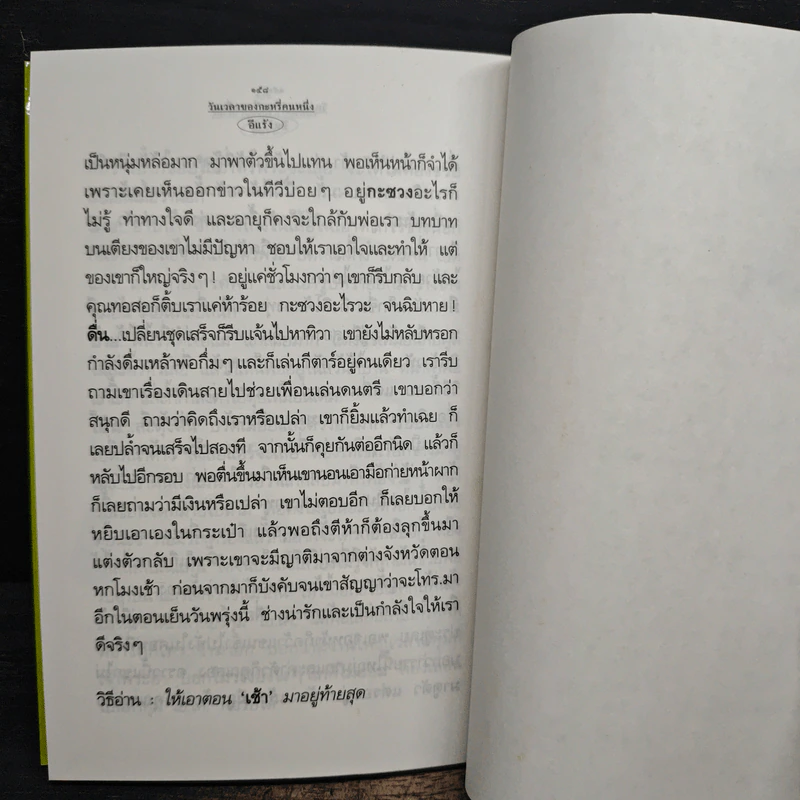 ๑๕๘
วันเวลาของกะหรี่คนหนึ่ง
อีแร้ง
เป็นหนุ่มหล่อมาก มาพาตัวขึ้นไปแทน พอเห็นหน้าก็จำได้
เพราะเคยเห็นออกข่าวในทีวีบ่อยๆ อยู่กะซวงอะไรก็
ไม่รู้ ท่าทางใจดี และอายุก็คงจะใกล้กับพ่อเรา บทบาท
บนเตียงของเขาไม่มีปัญหา ชอบให้เราเอาใจและทำให้ แต่
ของเขาก็ใหญ่จริงๆ! อยู่แค่ชั่วโมงกว่าๆ เขาก็รีบกลับ และ
คุณทอสอก็ติ้บเราแค่ห้าร้อย กะซวงอะไรวะ จนฉิบหาย!
ดื่น...เปลี่ยนชุดเสร็จก็รีบแจ้นไปหาทิวา เขายังไม่หลับหรอก
กำลังดื่มเหล้าพอกึ่มๆ และก็เล่นกีตาร์อยู่คนเดียว เรารีบ
ถามเขาเรื่องเดินสายไปช่วยเพื่อนเล่นดนตรี เขาบอกว่า
สนุกดี ถามว่าคิดถึงเราหรือเปล่า เขาก็ยิ้มแล้วทำเฉย ก็
เลยปล้ำจนเสร็จไปสองที จากนั้นก็คุยกันต่ออีกนิด แล้วก็
หลับไปอีกรอบ พอตื่นขึ้นมาเห็นเขานอนเอามือก่ายหน้าผาก
ก็เลยถามว่ามีเงินหรือเปล่า เขาไม่ตอบอีก ก็เลยบอกให้
หยิบเอาเองในกระเป๋า แล้วพอถึงตีห้าก็ต้องลุกขึ้นมา
แต่งตัวกลับ เพราะเขาจะมีญาติมาจากต่างจังหวัดตอน
หกโมงเช้า ก่อนจากมาก็บังคับจนเขาสัญญาว่าจะโทร.มา
อีกในตอนเย็นวันพรุ่งนี้ ช่างน่ารักและเป็นกำลังใจให้เรา
ดีจริงๆ
วิธีอ่าน : ให้เอาตอน ‘เช้า’ มาอยู่ท้ายสุด